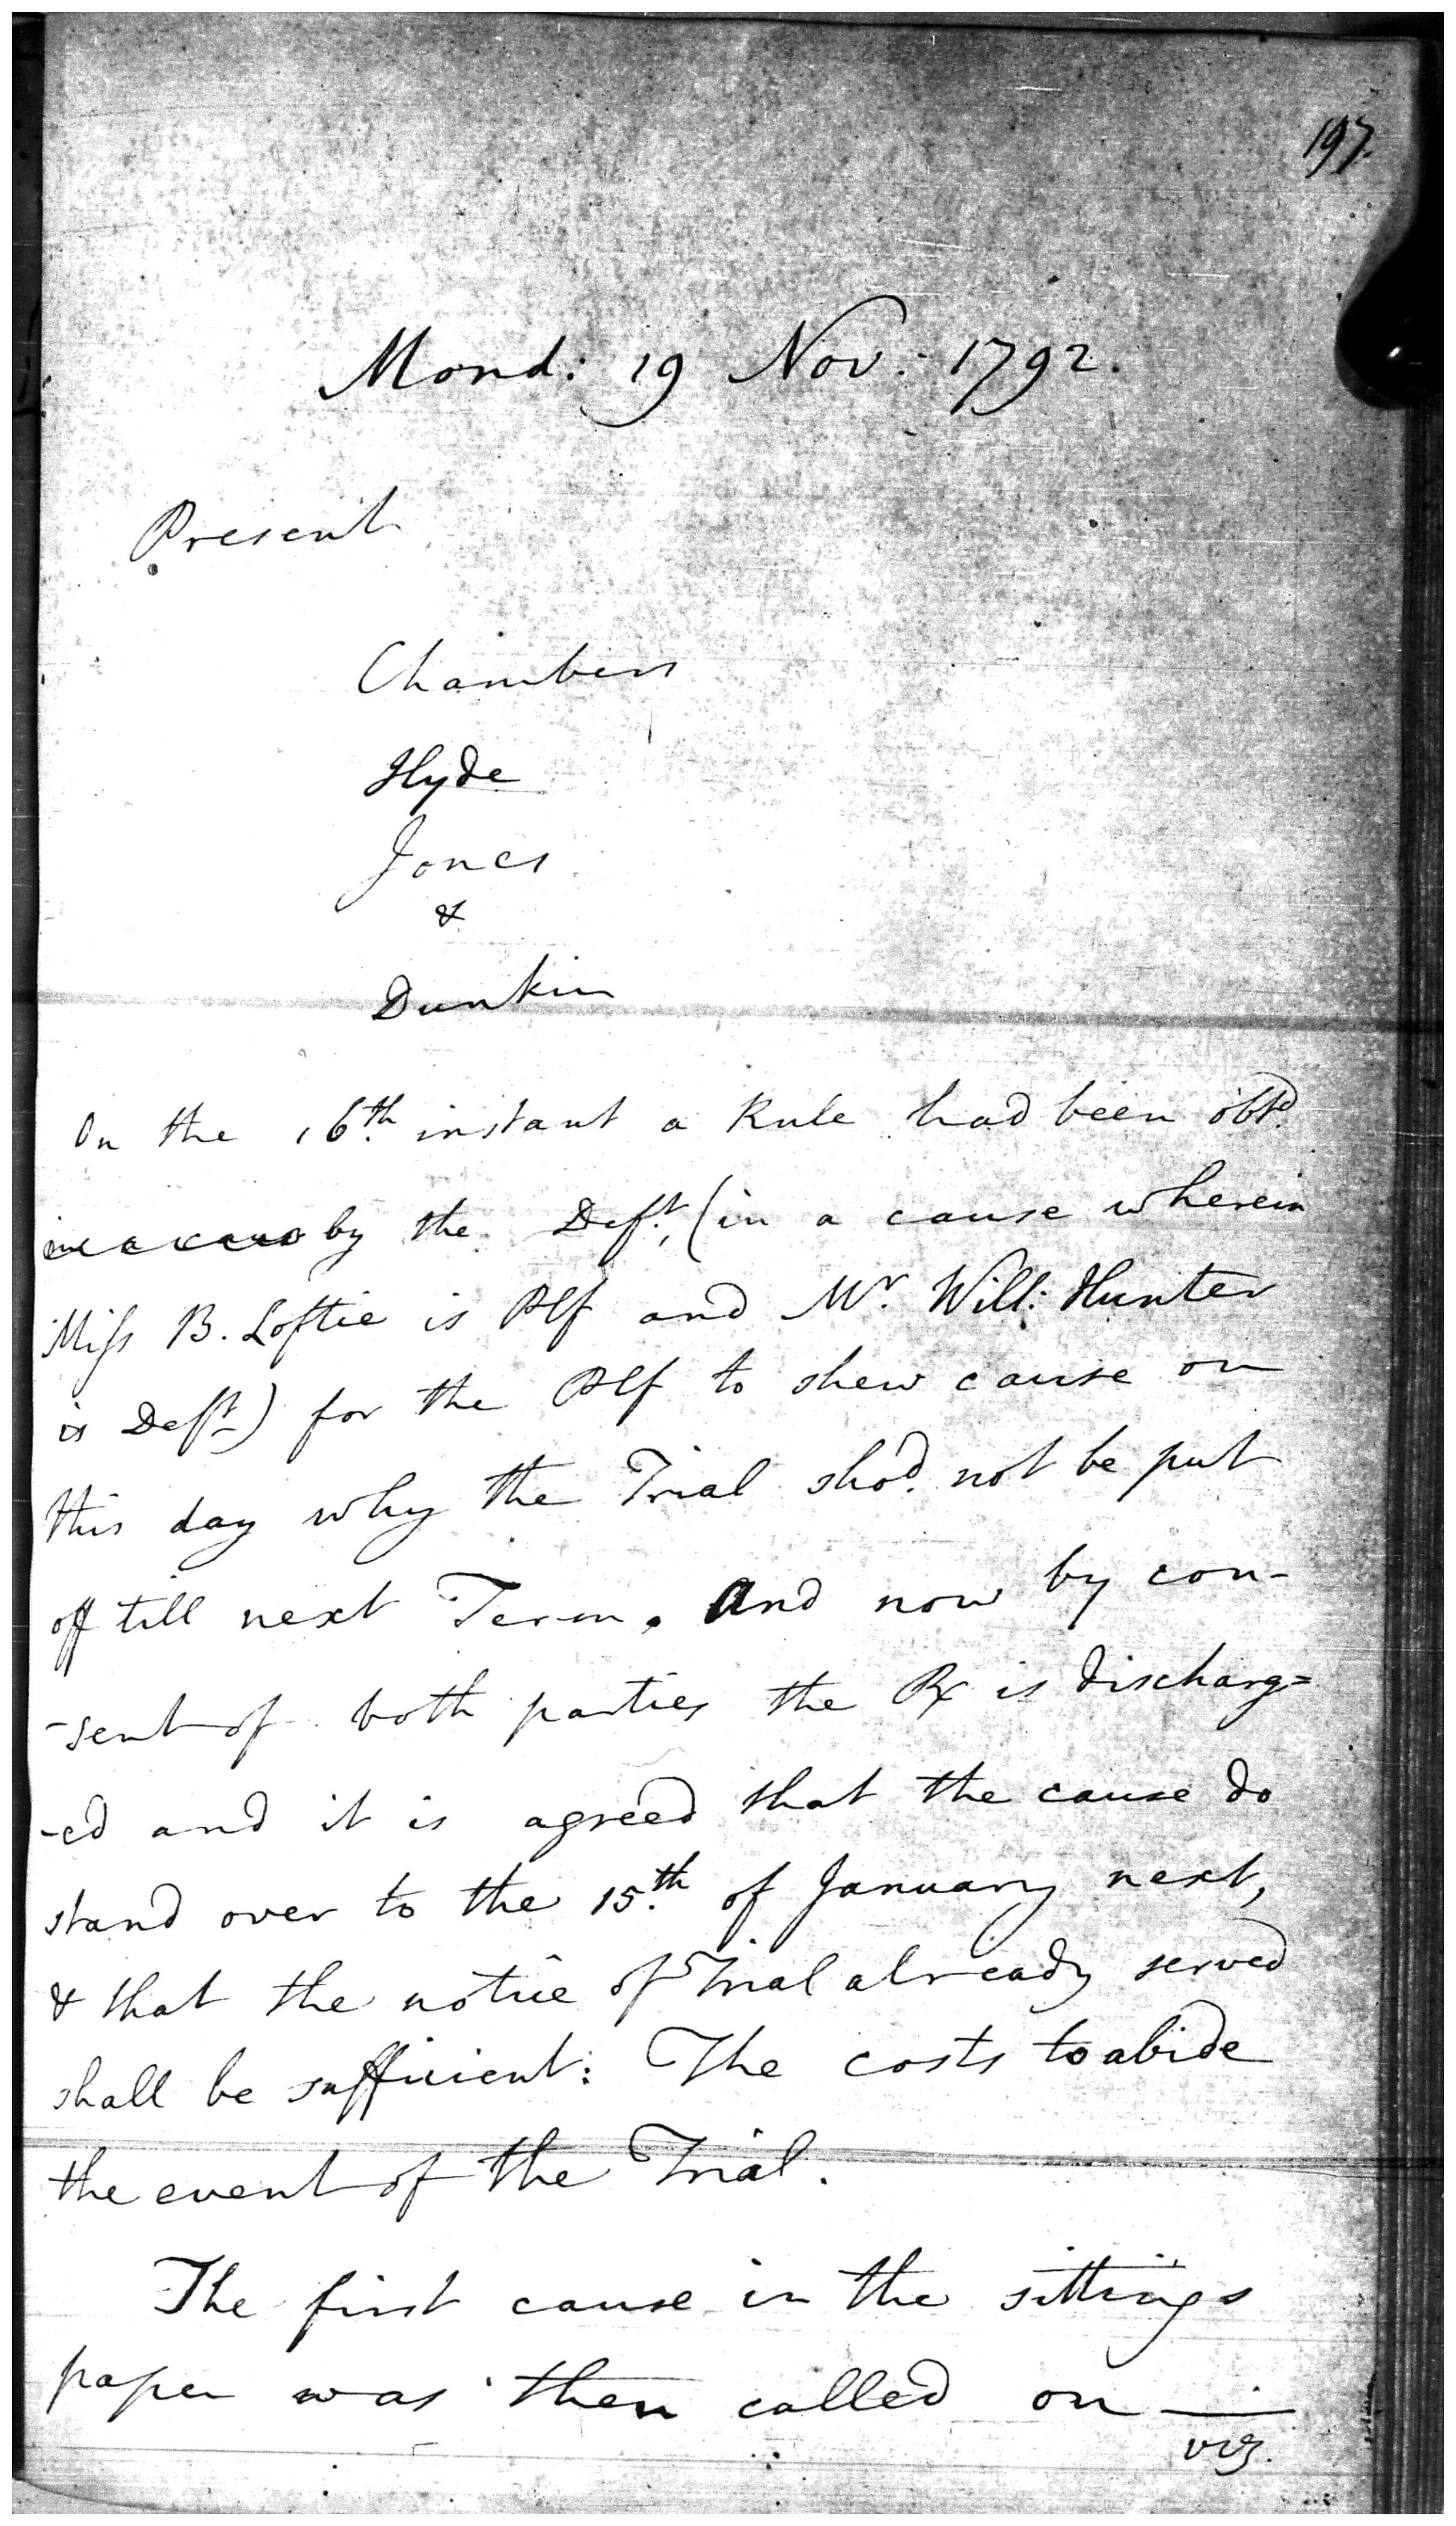 197.
Mond: 19 Nov: 1792.
Present
Chambers
Hyde
Jones
&
Dunkin
On the 16th. instant a Rule had been obtd.
by the Deft., (in a cause wherein
Miss B. Loftie is Plf and Mr. Will: Hunter
is Deft.) for the Plf to shew cause on
this day why the Trial shod. not be put
off till next Term. And now by con-
-sent of both parties the Rx is discharg=
-ed and it is agreed that the cause do
stand over to the 15th. of January next,
& that the notice of Trial already served
shall be sufficient: The costs to abide
the event of the Trial.
The first cause in the sittings
paper was then called on —
viz.